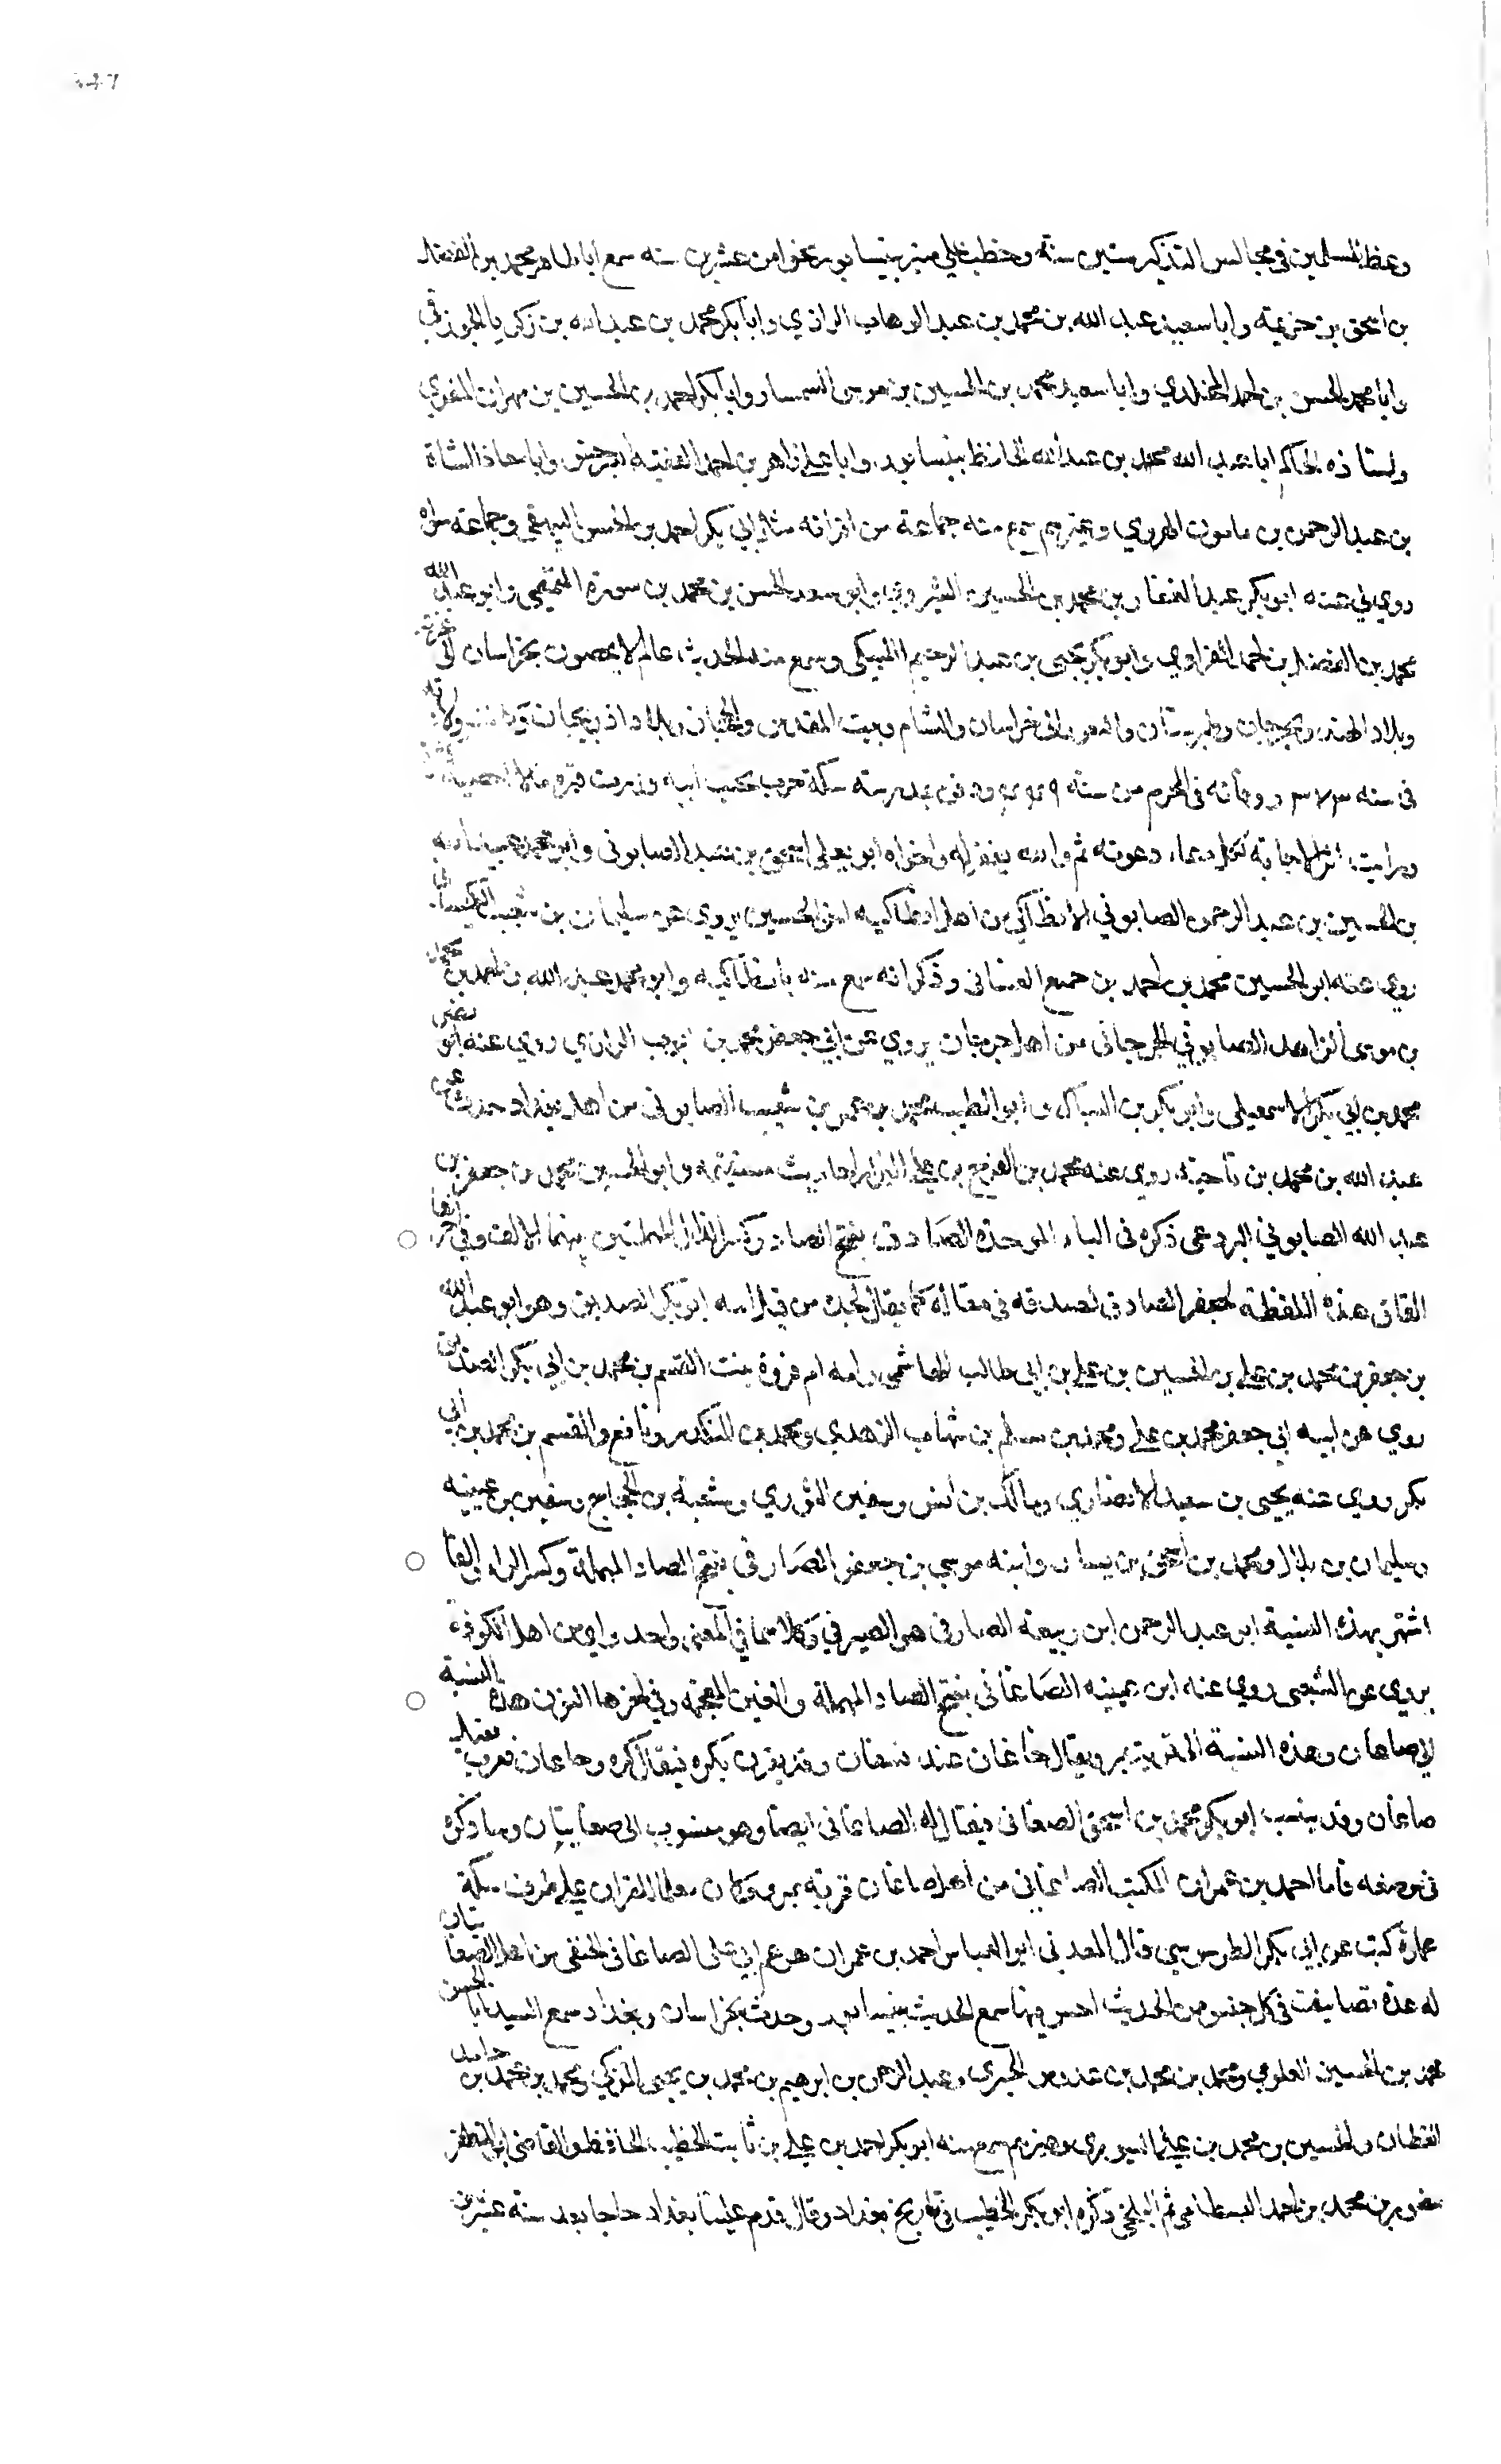 وعظ المسلمين في مجالس التذكير ستين سنة وخطب على منبر نيسابور نحوا من عشرين سنه سمع ابا طاهر محمد بن الفضل
بن اسحق بن خزيمة وابا سعيد عبد الله بن محمد بن عبد الوهاب الرازي وابا بكر محمد بن عبد الله بن زكريا الجوزقي
وابا محمد الحسن بن احمد المخلدي وابا سعيد محمد بن الحسين بن موسى السمسار وابا بكر احمد بن الحسين بن مهران المقري
واستاذه الحاكم ابا عبد الله محمد بن عبد الله الحافظ بنيسابور وابا علي زاهر بن احمد الفقيه بسرخس وابا معاذ الشاة
بن عبد الرحمن بن مامون الهروي وغيرهم سمع منه جماعة من اقرانه مثل ابي بكر احمد بن الحسن البيهقي وجماعة سواه
روى لي عنه ابو بكر عبد الغفار بن محمد بن الحسين الشيروي وابو سعد الحسن بن محمد بن سورة التميمي وابو عبد الله
محمد بن الفضل بن احمد الفراوي وابو بكر يحيى بن عبد الرحيم اللبيكي وسمع منه الحديث عالم لا يحصون بخراسان الى غزنة
وبلاد الهند وبجرجان وطبرستان والثغور الى خراسان والشام وبيت المقدس والحجاز وبلاد اذربيجان وكانت ولادته
في سنه ٣٧٣ ووفاته في المحرم من سنة ٤٤٩ ودفن بمدرسته سكة حرب بجنب ابيه وزرت قبره مالا احصيه
ورايت اثر الاجابة لكل دعاء دعوته ثم والله يغفر له واخواه ابو يعلى اسحق بن عبد الصابوني وابو محمد
بن الحسين بن عبد الرحمن الصابوني الانطاكي من اهل انطاكيه ابن الحسين يروي عن سليمان بن شعيب الكيساني
روى عنه ابو الحسين محمد بن احمد بن جميع الغساني وذكر انه سمع منه بانطاكيه وابو محمد عبد الله بن احمد بن محمد
بن موسى الزاهد الصابوني الجرجاني من اهل جرجان يروي عن ابي جعفر محمد بن الرازي روى عنه ابو نصر
محمد بن ابي بكر الاسمعيلي وابو بكر بن السباك وابو الطيب محمد بن عمر بن شعيب الصابوني من اهل بغداد حدث عن
عبد الله بن محمد بن ناجية روى عنه محمد بن الفرج بن علي البزاز احاديث مستقيمة وابو الحسين محمد بن جعفر بن
عبد الله الصابوني البردعي ذكره في الباء الموحدة الصَادق بفتح الصاد وكسر الدال المهملتين بينهما الالف وفي اخرها
القاف هذه اللفظة لجعفر الصادق لصدقه في مقاله كما يقال لجده من قبل امه ابو بكر الصديق وهو ابو عبد الله
بن جعفر بن محمد بن علي بن الحسين بن علي بن ابي طالب الهاشمي وامه ام فروة بنت القسم بن محمد بن ابي بكر الصديق
روى عن ابيه ابي جعفر محمد بن علي ومحمد بن مسلم بن شهاب الزهدي ومحمد بن المنكدر ونافع والقسم بن محمد بن ابي
بكر روى عنه يحيى بن سعيد الانصاري ومالك بن انس وسفين الثوري وشعبة بن الحجاج وسفين بن عيينه
وسليمان بن بلال ومحمد بن اسحق بن يسار وابنه موسى بن جعفر الصَارفي بفتح الصاد المهملة وكسر الراء والفا
اشتهر بهذه النسبة ابو عبد الرحمن ابن ربيعة الصارفي هو الصيرفي وكلاهما في المعنى واحد وابو من اهل الكوفة
يروي عن الشعبي روى عنه ابن عيينه الصَاغاني بفتح الصاد المهملة والغين المعجمة وفي اخرها النون هذه النسبة
الى صاغان وهذه النسبة الى قرية بمرو ويقال جاغان عند سفان وقد يقرن بكره فيقال كره وجاغان فعرب فقيل
صاغان وقد ينسب ابو بكر محمد بن اسحق الصغاني فيقال له الصاغاني ايضا وهو منسوب الى صغانيان وساذكره
في موضعه فاما احمد بن عمران المكتب الصاغاني من اهل صاغان قرية بمرو وكان معلما للقران على طرف سكة
عمارة كتب عن ابي بكر الطرسوسي قال المعداني ابو العباس احمد بن عمران هو عم ابي على الصاغاني الحنفي من اهل الصغانيان
له عدة تصانيف في كل جنس من الحديث احسن فيها سمع الحديث بنيسابور وحدث بخراسان وبغداد سمع السيد ابا الحسن
محمد بن الحسين العلوي ومحمد بن محمد بن عبدوس الحيري وعبد الرحمن بن ابرهيم بن محمد بن يحيى المزكي ومحمد بن محمد بن حامد
القطان والحسين بن محمد بن علي السيوري وغيرهم سمع منه ابو بكر احمد بن علي بن ثابت الخطيب الحافظ والقاضي ابو المظفر
منصور بن محمد بن احمد البسطامي ثم البلخي ذكره ابو بكر الخطيب في تاريخ بغداد وقال قدم علينا بغداد حاجا بعد سنة عشرين